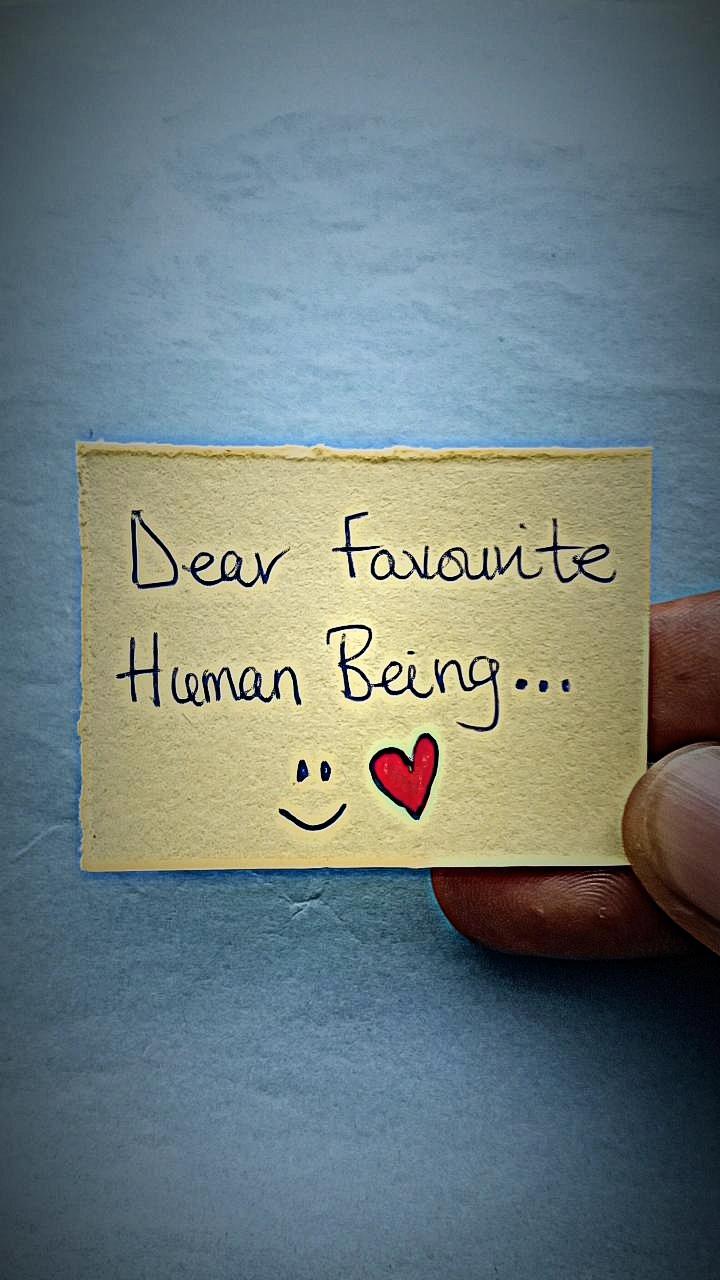 Dear Favourite
Human Being...